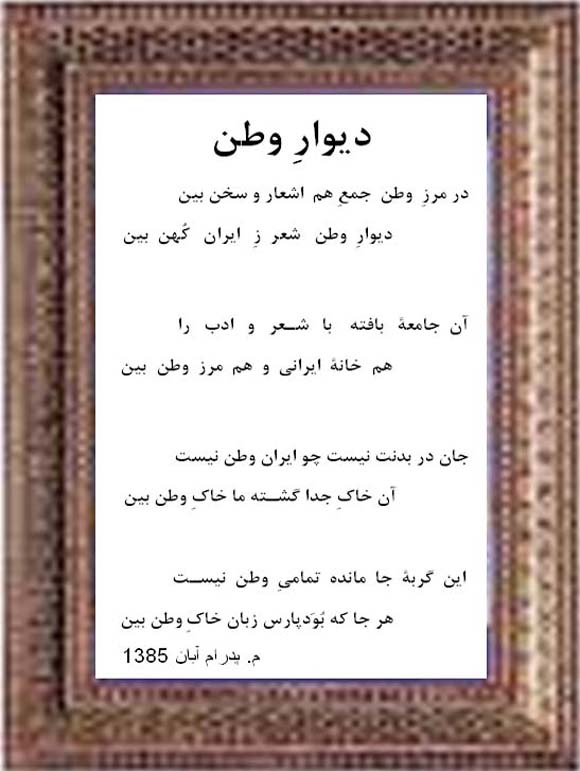 دیوارِ وطن
در مرزِ وطن جمعِ هم اشعار و سخن بین
دیوارِ وطن شعر زِ ایران کُهن بین
آن جامعۀ بافته با شــعر و ادب را
هم خانۀ ایرانی و هم مرز وطن بین
جان در بدنت نیست چو ایران وطن نیست
آن خاکِ جدا گشــته ما خاکِ وطن بین
این گربۀ جا مانده تمامیِ وطن نیســت
هر جا که بُوَدپارس زبان خاکِ وطن بین
م. پدرام آبان 1385